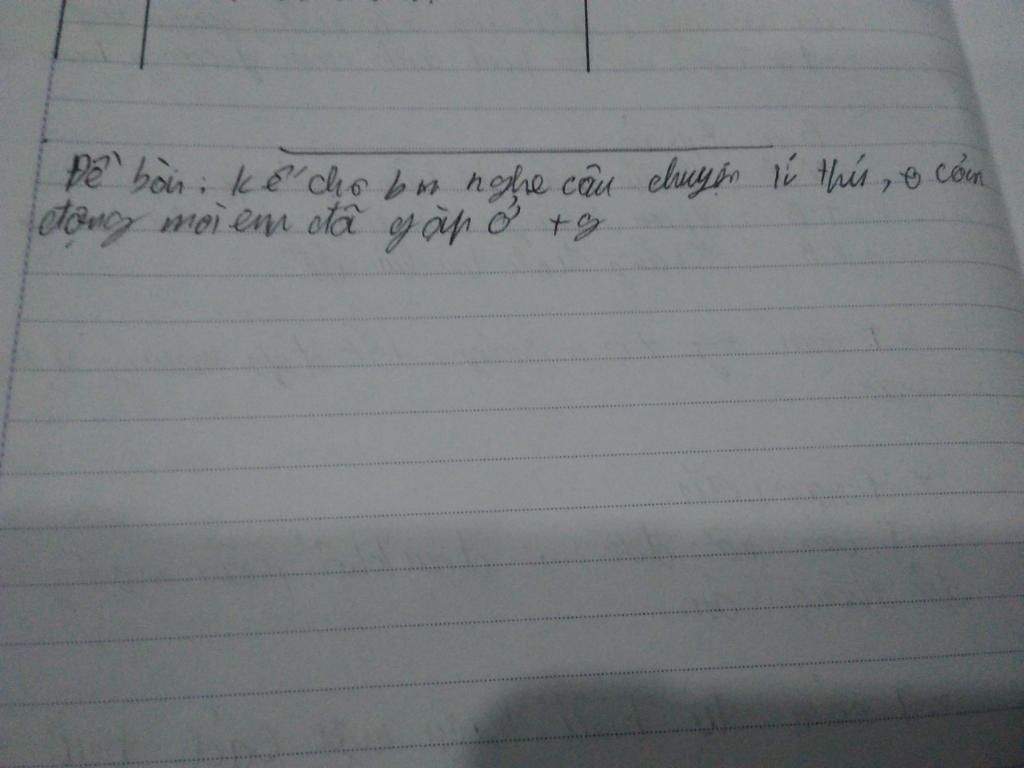 Đề bài: kể cho bn nghe câu chuyện lí thú, cảm
động mà em đã gặp ở +g